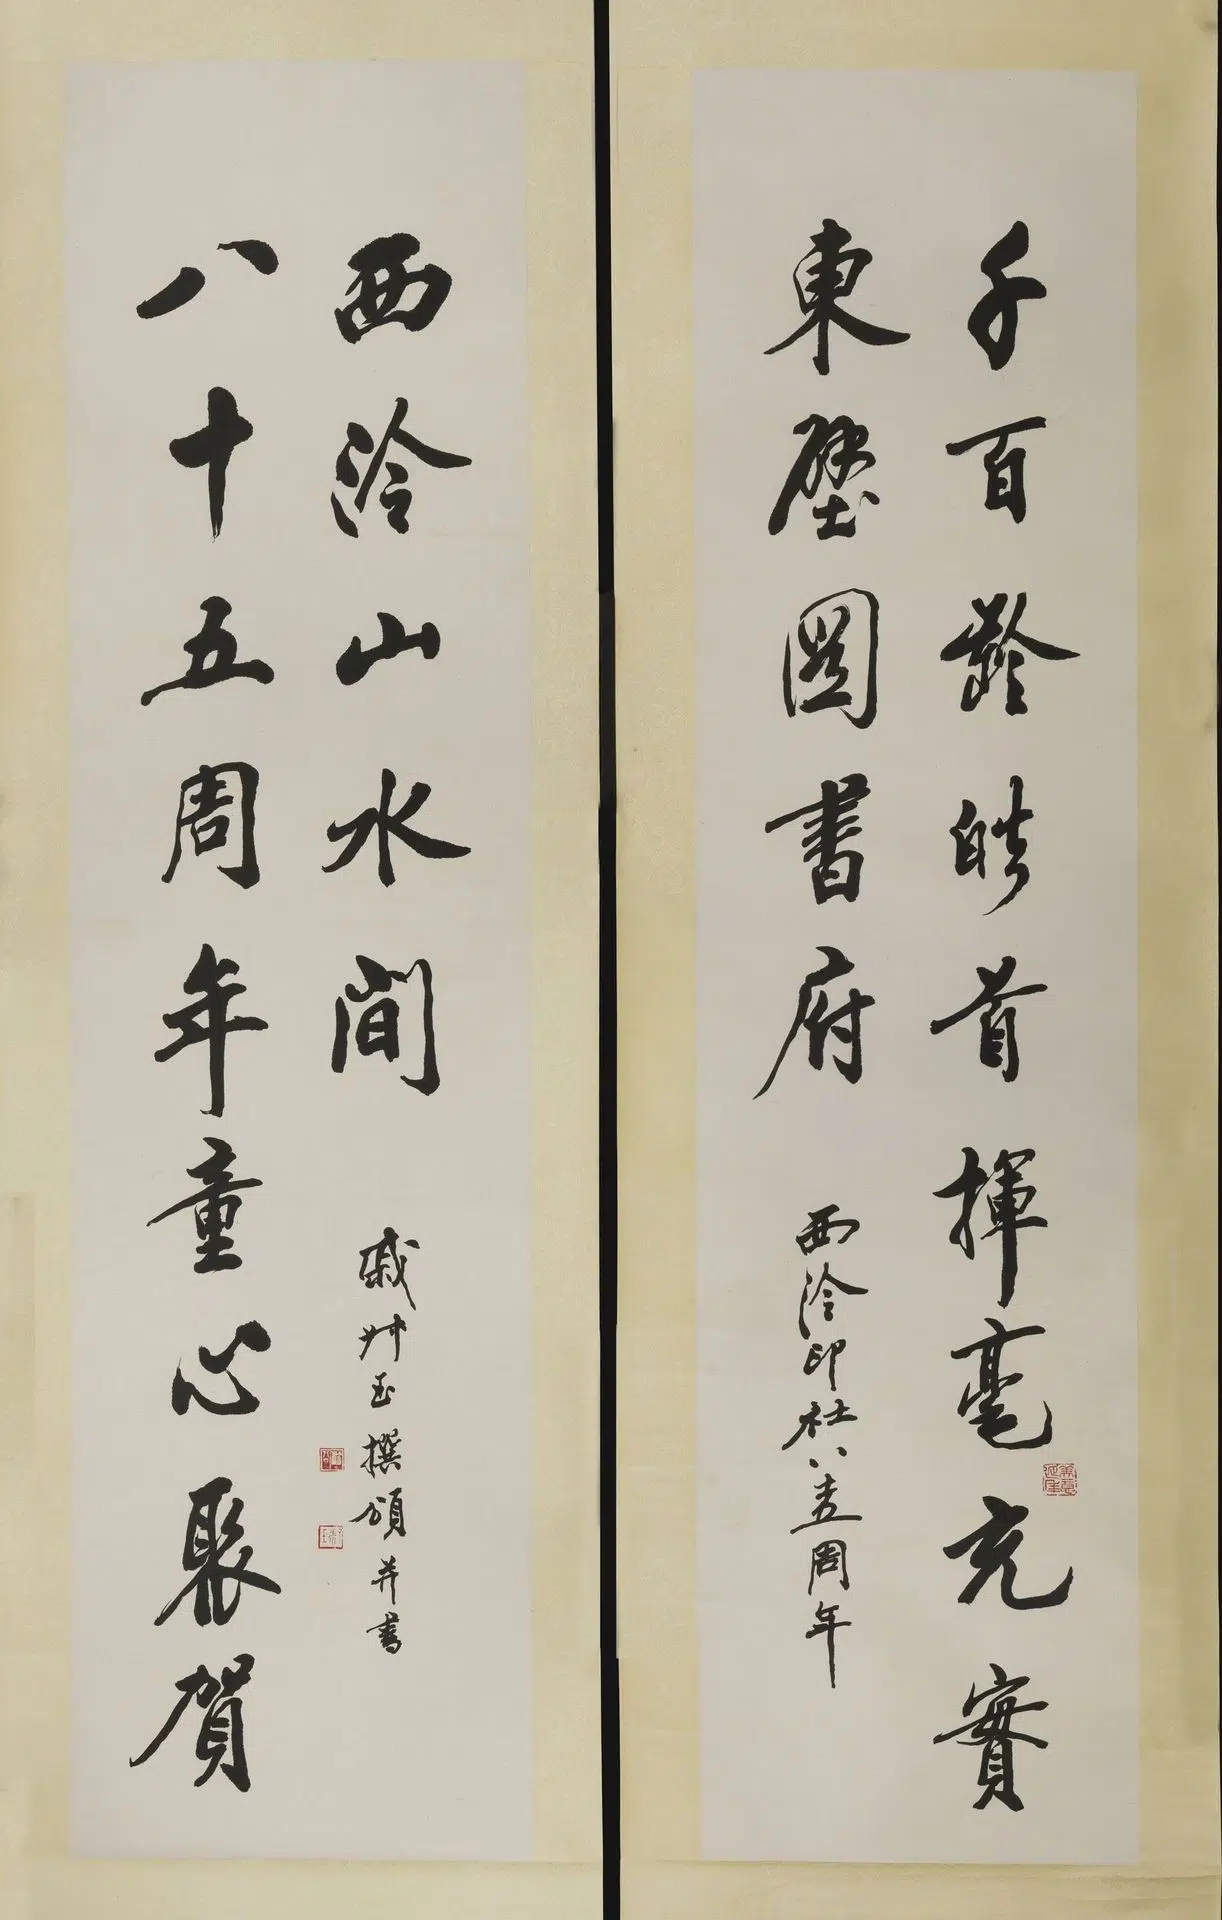 千百齡皓首揮毫充實
東壁圖書府
西泠印社八十五周年
美意延年
八十五周年童心聚賀
西泠山水間
戚叔玉撰頌并書